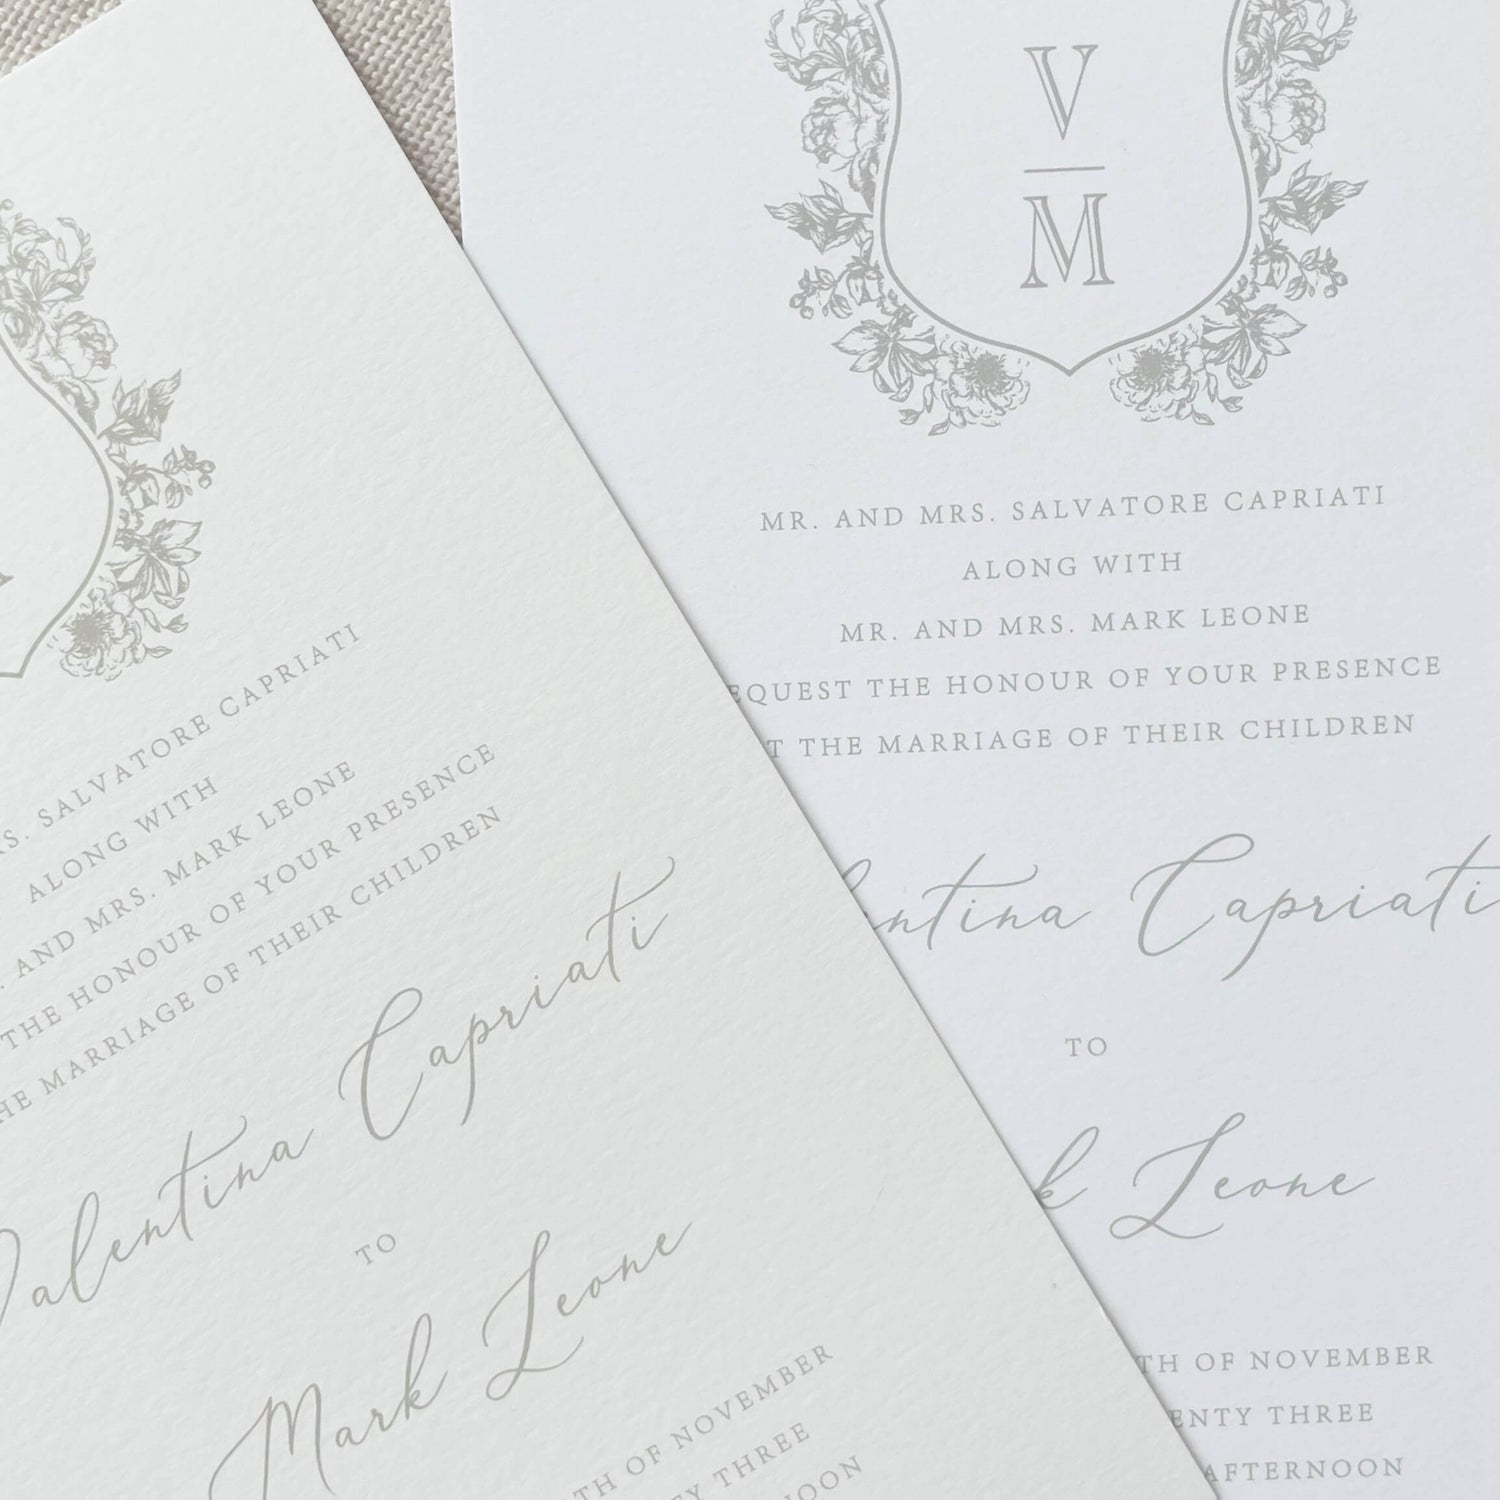 V
M
MR. AND MRS. SALVATORE CAPRIATI
ALONG WITH
MR. AND MRS. MARK LEONE
EQUEST THE HONOUR OF YOUR PRESENCE
T THE MARRIAGE OF THEIR CHILDREN
entina Capriati
TO
k Leone
TH OF NOVEMBER
ENTY THREE
AFTERNOON
S. SALVATORE CAPRIATI
ALONG WITH
. AND MRS. MARK LEONE
THE HONOUR OF YOUR PRESENCE
HE MARRIAGE OF THEIR CHILDREN
Valentina Capriati
TO
Mark Leone
TH OF NOVEMBER
TY THREE
NOON